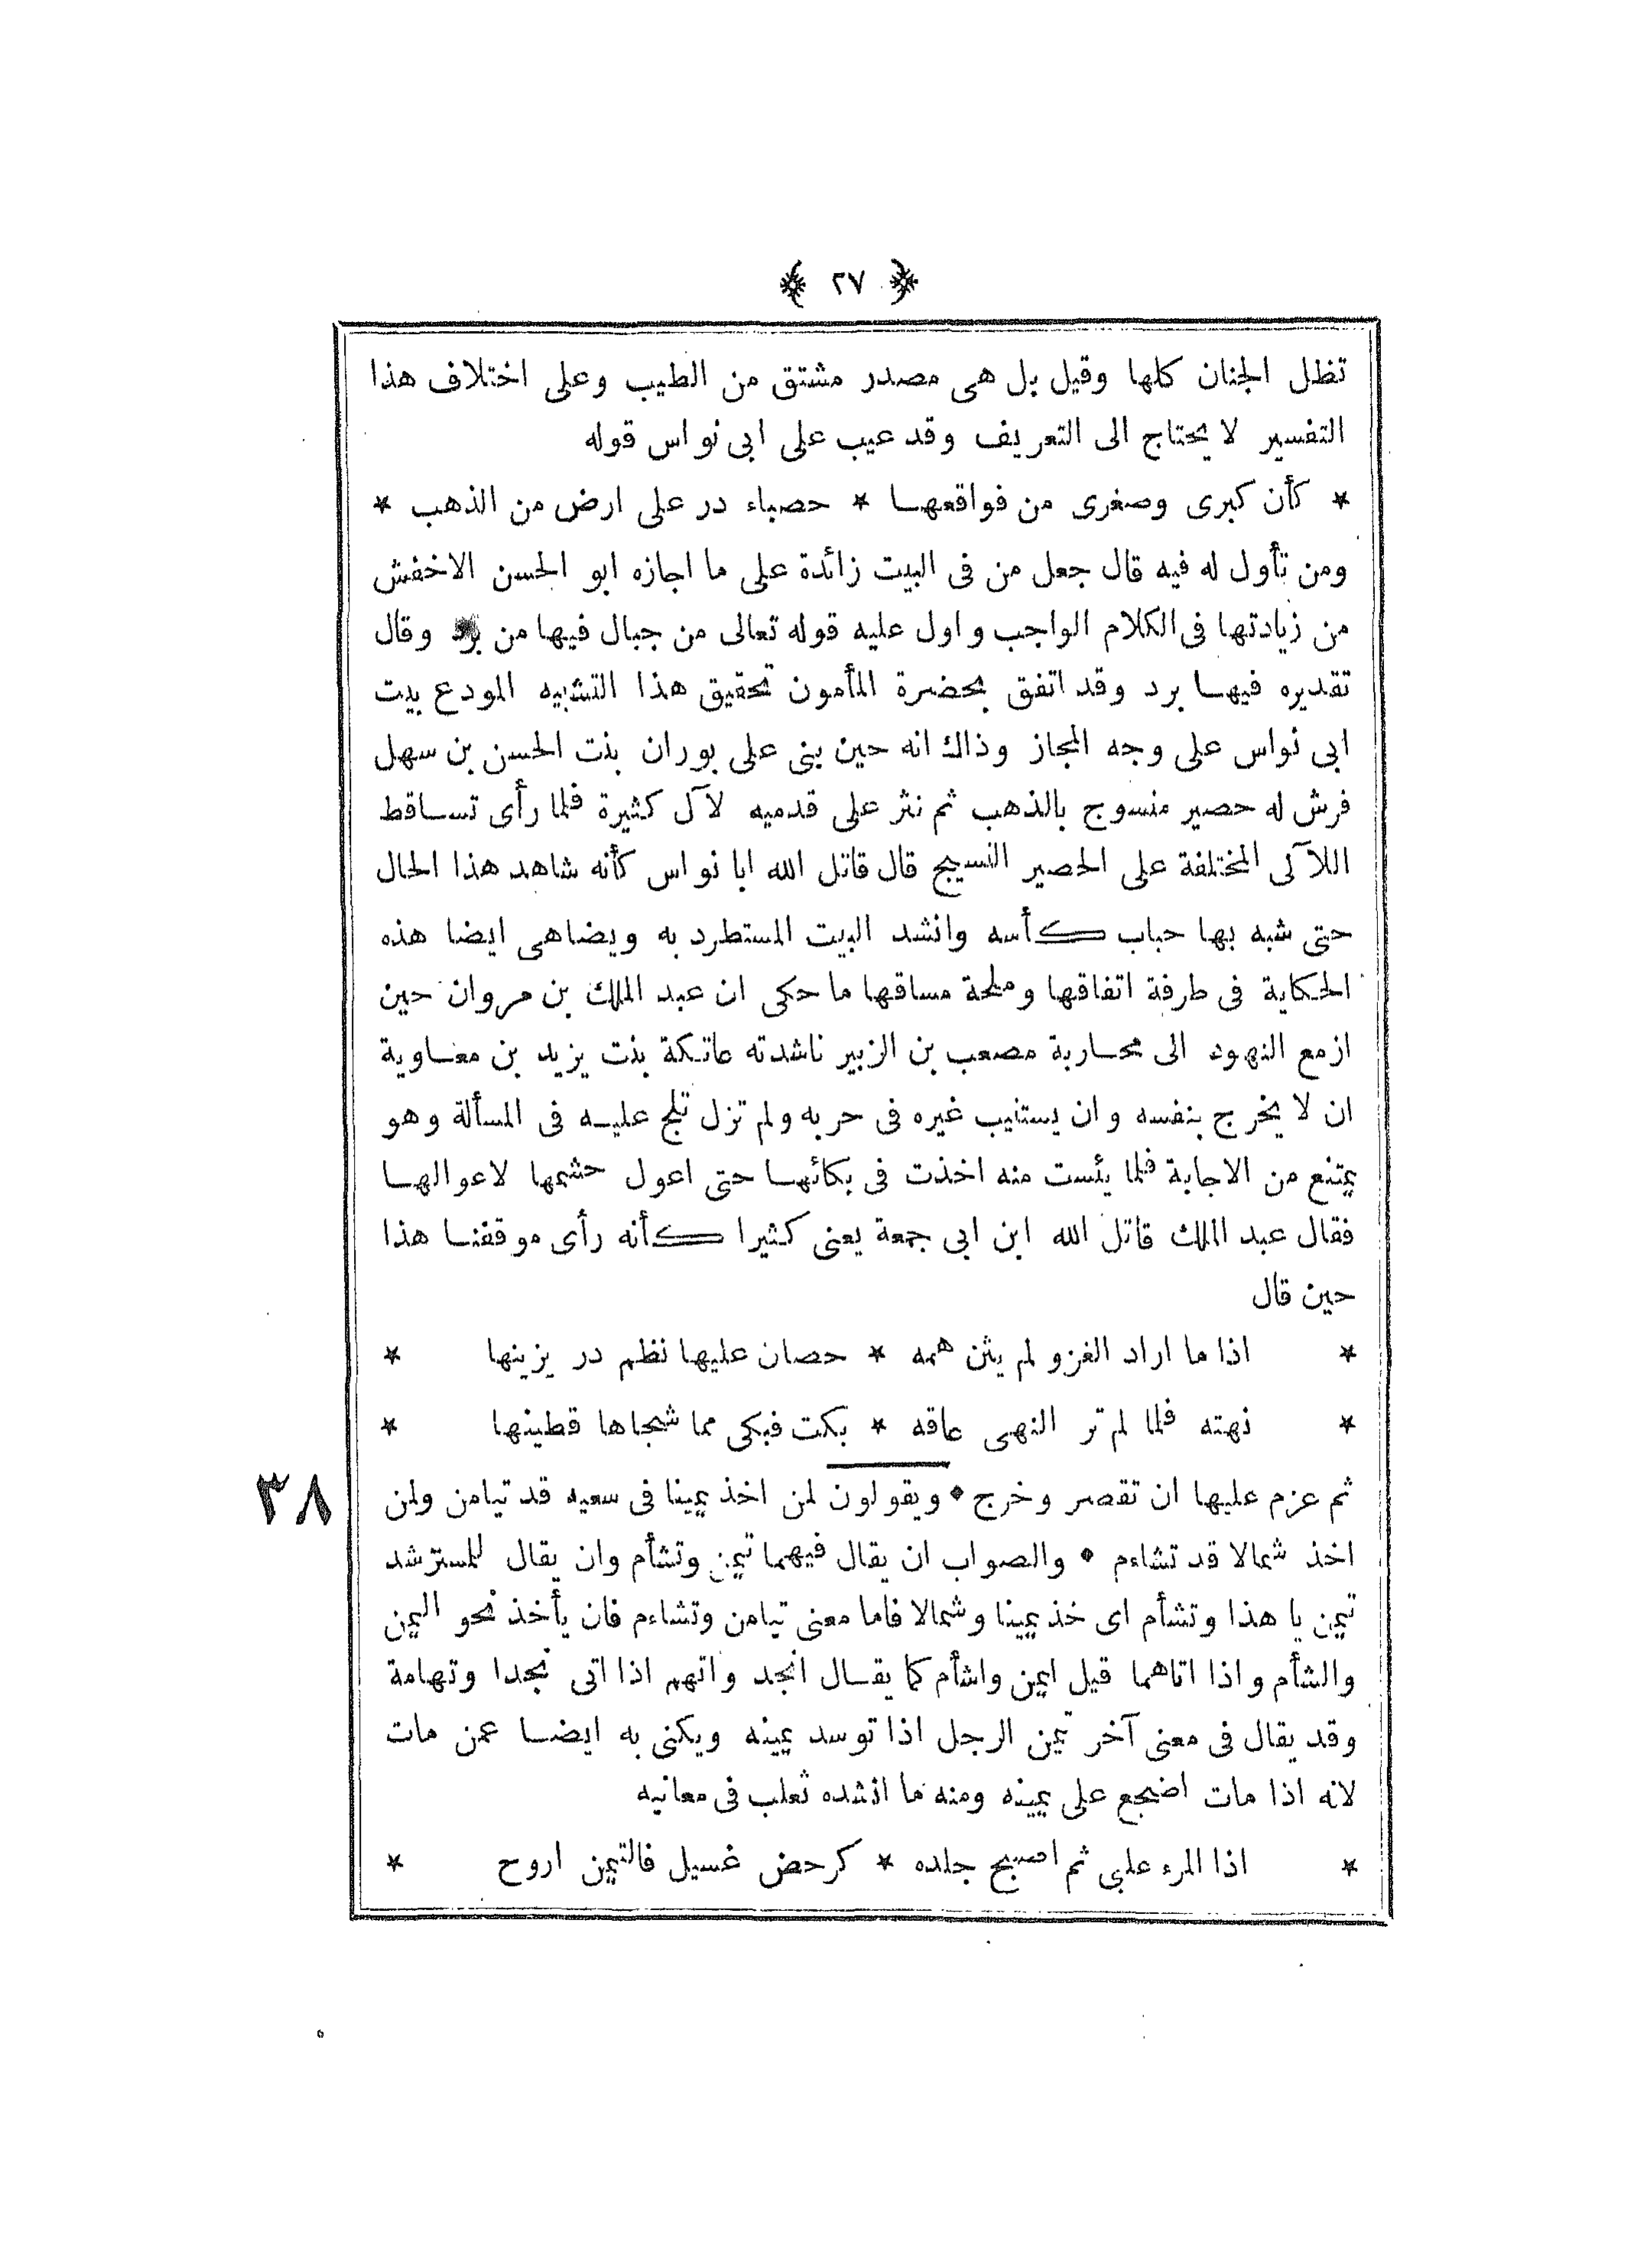 ﴿ ٢٧ ﴾
تظل الجنان كلها وقيل بل هى مصدر مشتق من الطيب وعلى اختلاف هذا
التفسير لا يحتاج الى التعريف وقد عيب على ابى نواس قوله
* كأن كبرى وصغرى من فواقعهـا * حصباء در على ارض من الذهب *
ومن تأول له فيه قال جعل من فى البيت زائدة على ما اجازه ابو الحسن الاخفش
من زيادتها فى الكلام الواجب واول عليه قوله تعالى من جبال فيها من برد وقال
تقديره فيهـا برد وقد اتفق بحضرة المأمون تحقيق هذا التشبيه المودع بيت
ابى نواس على وجه المجاز وذاك انه حين بنى على بوران بنت الحسن بن سهل
فرش له حصير منسوج بالذهب ثم نثر على قدميه لآل كثيرة فلما رأى تسـاقط
اللآلى المختلفة على الحصير النسيج قال قاتل الله ابا نواس كأنه شاهد هذا الحال
حتى شبه بها حباب كـأسه وانشد البيت المستطرد به ويضاهى ايضا هذه
الحكاية فى طرفة اتفاقها وملحة مساقها ما حكى ان عبد الملك بن مروان حين
ازمع النهود الى محـاربة مصعب بن الزبير ناشدته عاتكة بنت يزيد بن معـاوية
ان لا يخرج بنفسه وان يستنيب غيره فى حربه ولم تزل تلح عليـه فى المسألة وهو
يمتنع من الاجابة فلما يئست منه اخذت فى بكائهـا حتى اعول حشمها لاعوالهـا
فقال عبد الملك قاتل الله ابن ابى جمعة يعنى كثيرا كـأنه رأى موقفنـا هذا
حين قال
* اذا ما اراد الغزو لم يثن همه * حصان عليها نظم در يزينها *
* نهته فلما لم تر النهى عاقه * بكت فبكى مما شجاها قطينها *
ثم عزم عليها ان تقصر وخرج • ويقولون لمن اخذ يمينا فى سعيه قد تيامن ولمن
٣٨
اخذ شمالا قد تشاءم • والصواب ان يقال فيهما تيمن وتشأم وان يقال للمسترشد
تيمن يا هذا وتشأم اى خذ يمينا وشمالا فاما معنى تيامن وتشاءم فان يأخذ نحو اليمن
والشأم واذا اتاهما قيل ايمن واشأم كما يقـال انجد واتهم اذا اتى نجدا وتهامة
وقد يقال فى معنى آخر تيمن الرجل اذا توسد يمينه ويكنى به ايضـا عمن مات
لانه اذا مات اضجع على يمينه ومنه ما انشده ثعلب فى معانيه
* اذا المرء علبى ثم اصبح جلده * كرحض غسيل فالتيمن اروح *